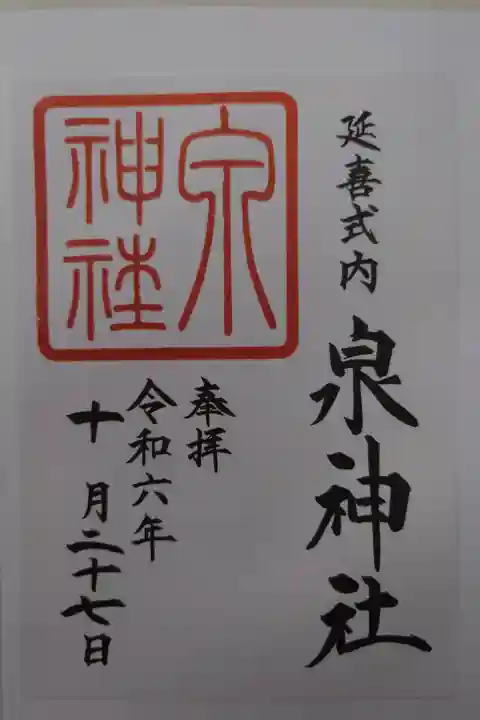 延喜式内
泉神社
奉拝
令和六年
十月二十七日
泉
神社